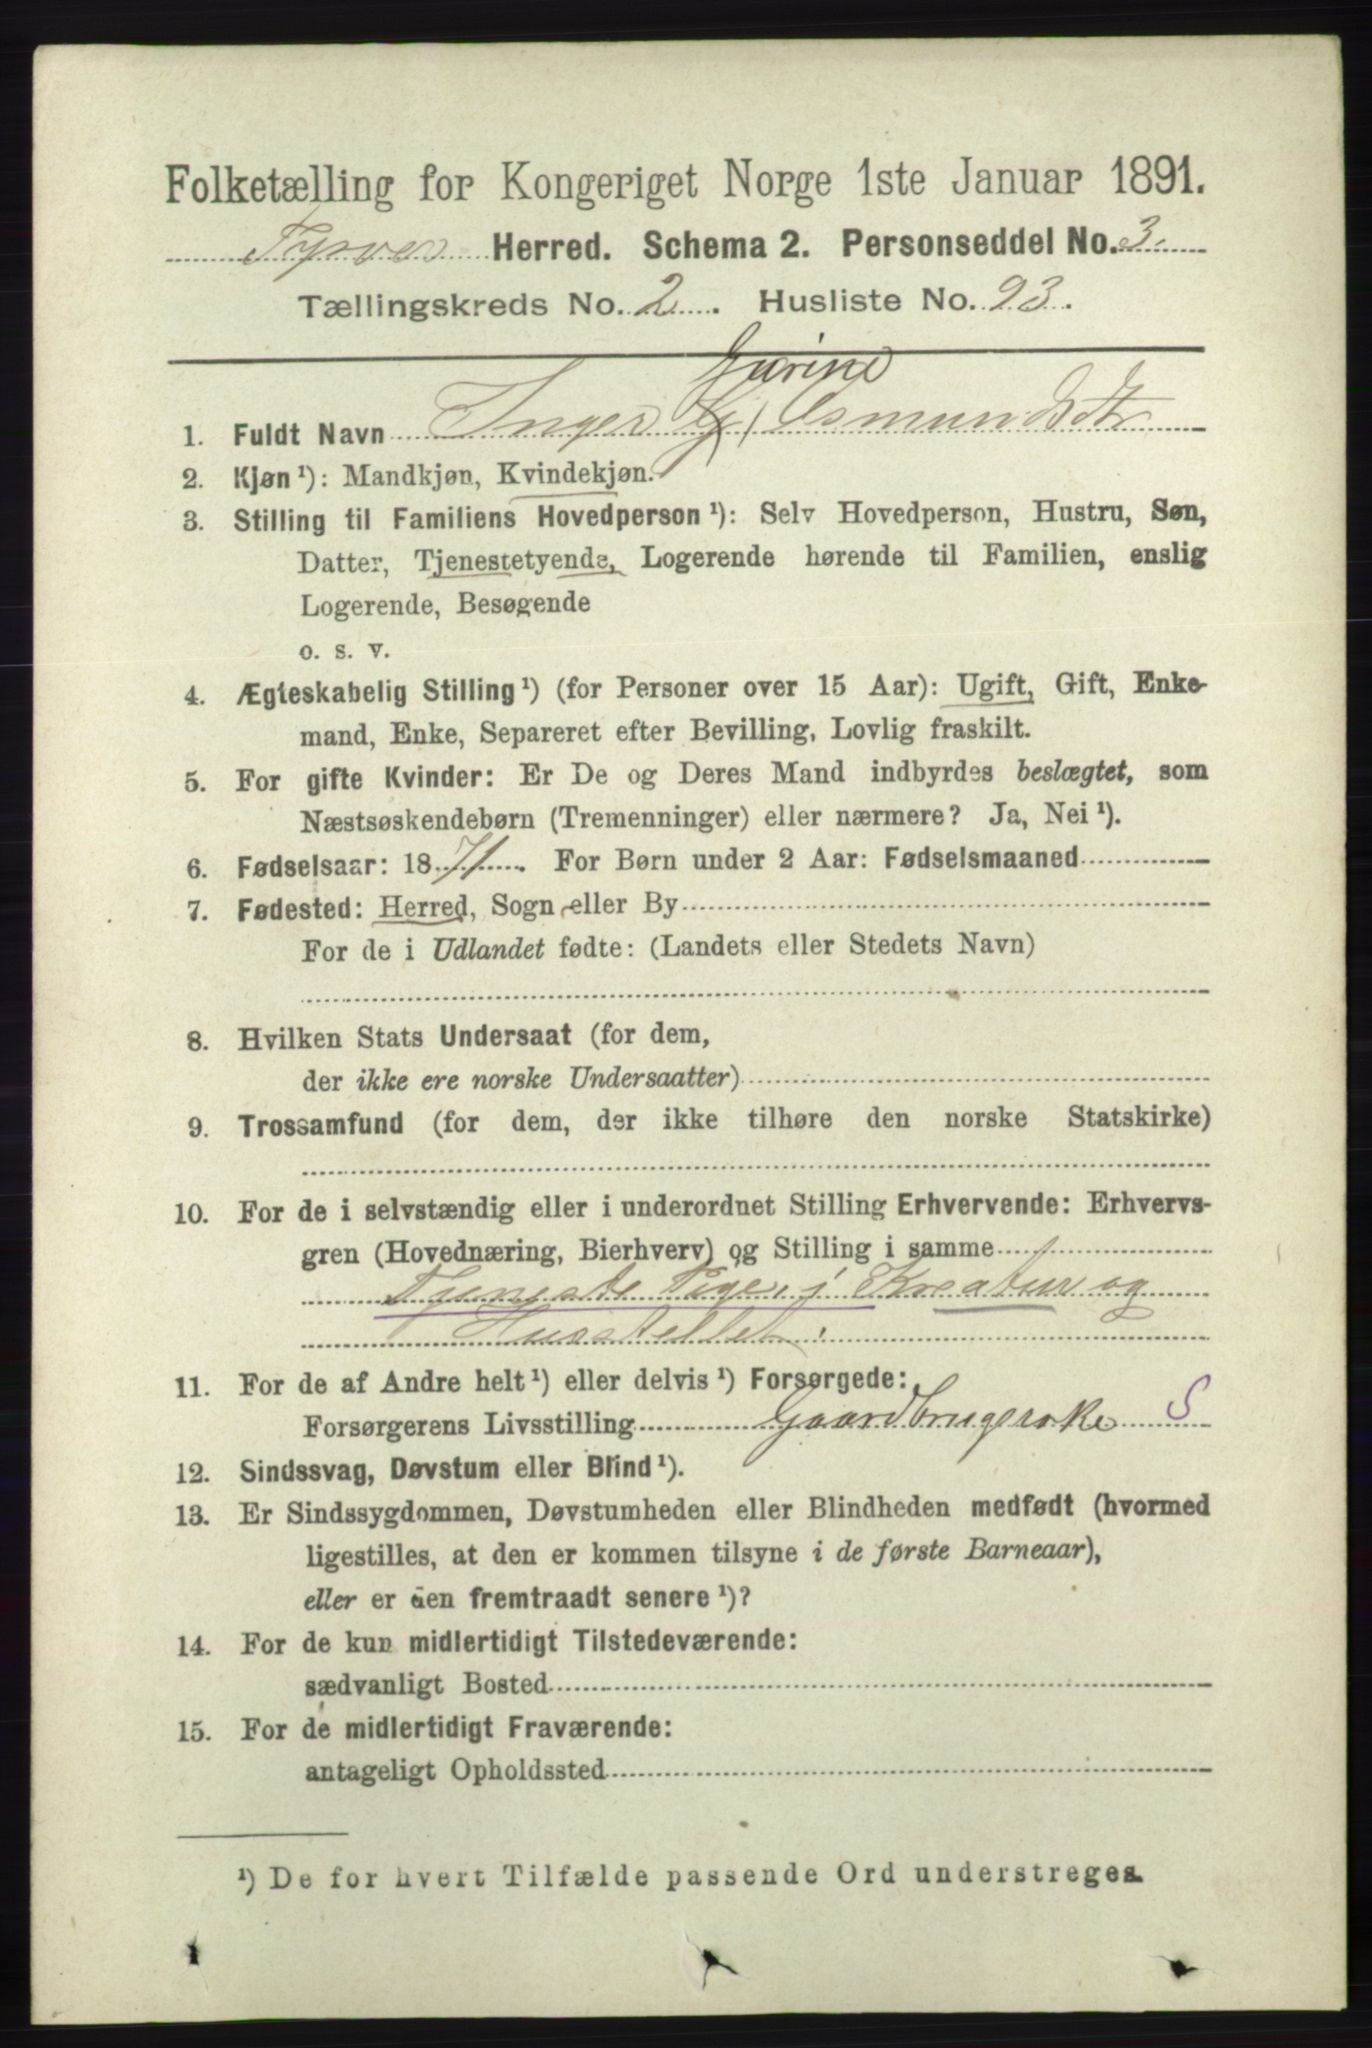 Folketælling for Kongeriget Norge 1ste Januar 1891.
Tysvær Herred. Schema 2. Personseddel No. 3.
Tællingskreds No. 2. Husliste No. 93.
Gurine
1. Fuldt Navn Inger G. Osmundsdtr
2. Kjøn ¹): Mandkjøn, Kvindekjøn.
3. Stilling til Familiens Hovedperson ¹): Selv Hovedperson, Hustru, Søn,
Datter, Tjenestetyende, Logerende hørende til Familien, enslig
Logerende, Besøgende
o. s. v.
4. Ægteskabelig Stilling ¹) (for Personer over 15 Aar): Ugift, Gift, Enke-
mand, Enke, Separeret efter Bevilling, Lovlig fraskilt.
5. For gifte Kvinder: Er De og Deres Mand indbyrdes beslægtet, som
Næstsøskendebørn (Tremenninger) eller nærmere? Ja, Nei ¹).
6. Fødselsaar: 1871. For Børn under 2 Aar: Fødselsmaaned
7. Fødested: Herred, Sogn eller By
For de i Udlandet fødte: (Landets eller Stedets Navn)
8. Hvilken Stats Undersaat (for dem,
der ikke ere norske Undersaatter)
9. Trossamfund (for dem, der ikke tilhøre den norske Statskirke)
10. For de i selvstændig eller i underordnet Stilling Erhvervende: Erhvervs-
gren (Hovednæring, Bierhverv) og Stilling i samme
Tjeneste Pige, i Kreatur og
Husstellet.
11. For de af Andre helt ¹) eller delvis ¹) Forsørgede:
Forsørgerens Livsstilling Gaardbrugerske S
12. Sindssvag, Døvstum eller Blind ¹).
13. Er Sindssygdommen, Døvstumheden eller Blindheden medfødt (hvormed
ligestilles, at den er kommen tilsyne i de første Barneaar),
eller er den fremtraadt senere ¹)?
14. For de kun midlertidigt Tilstedeværende:
sædvanligt Bosted
15. For de midlertidigt Fraværende:
antageligt Opholdssted
¹) De for hvert Tilfælde passende Ord understreges.